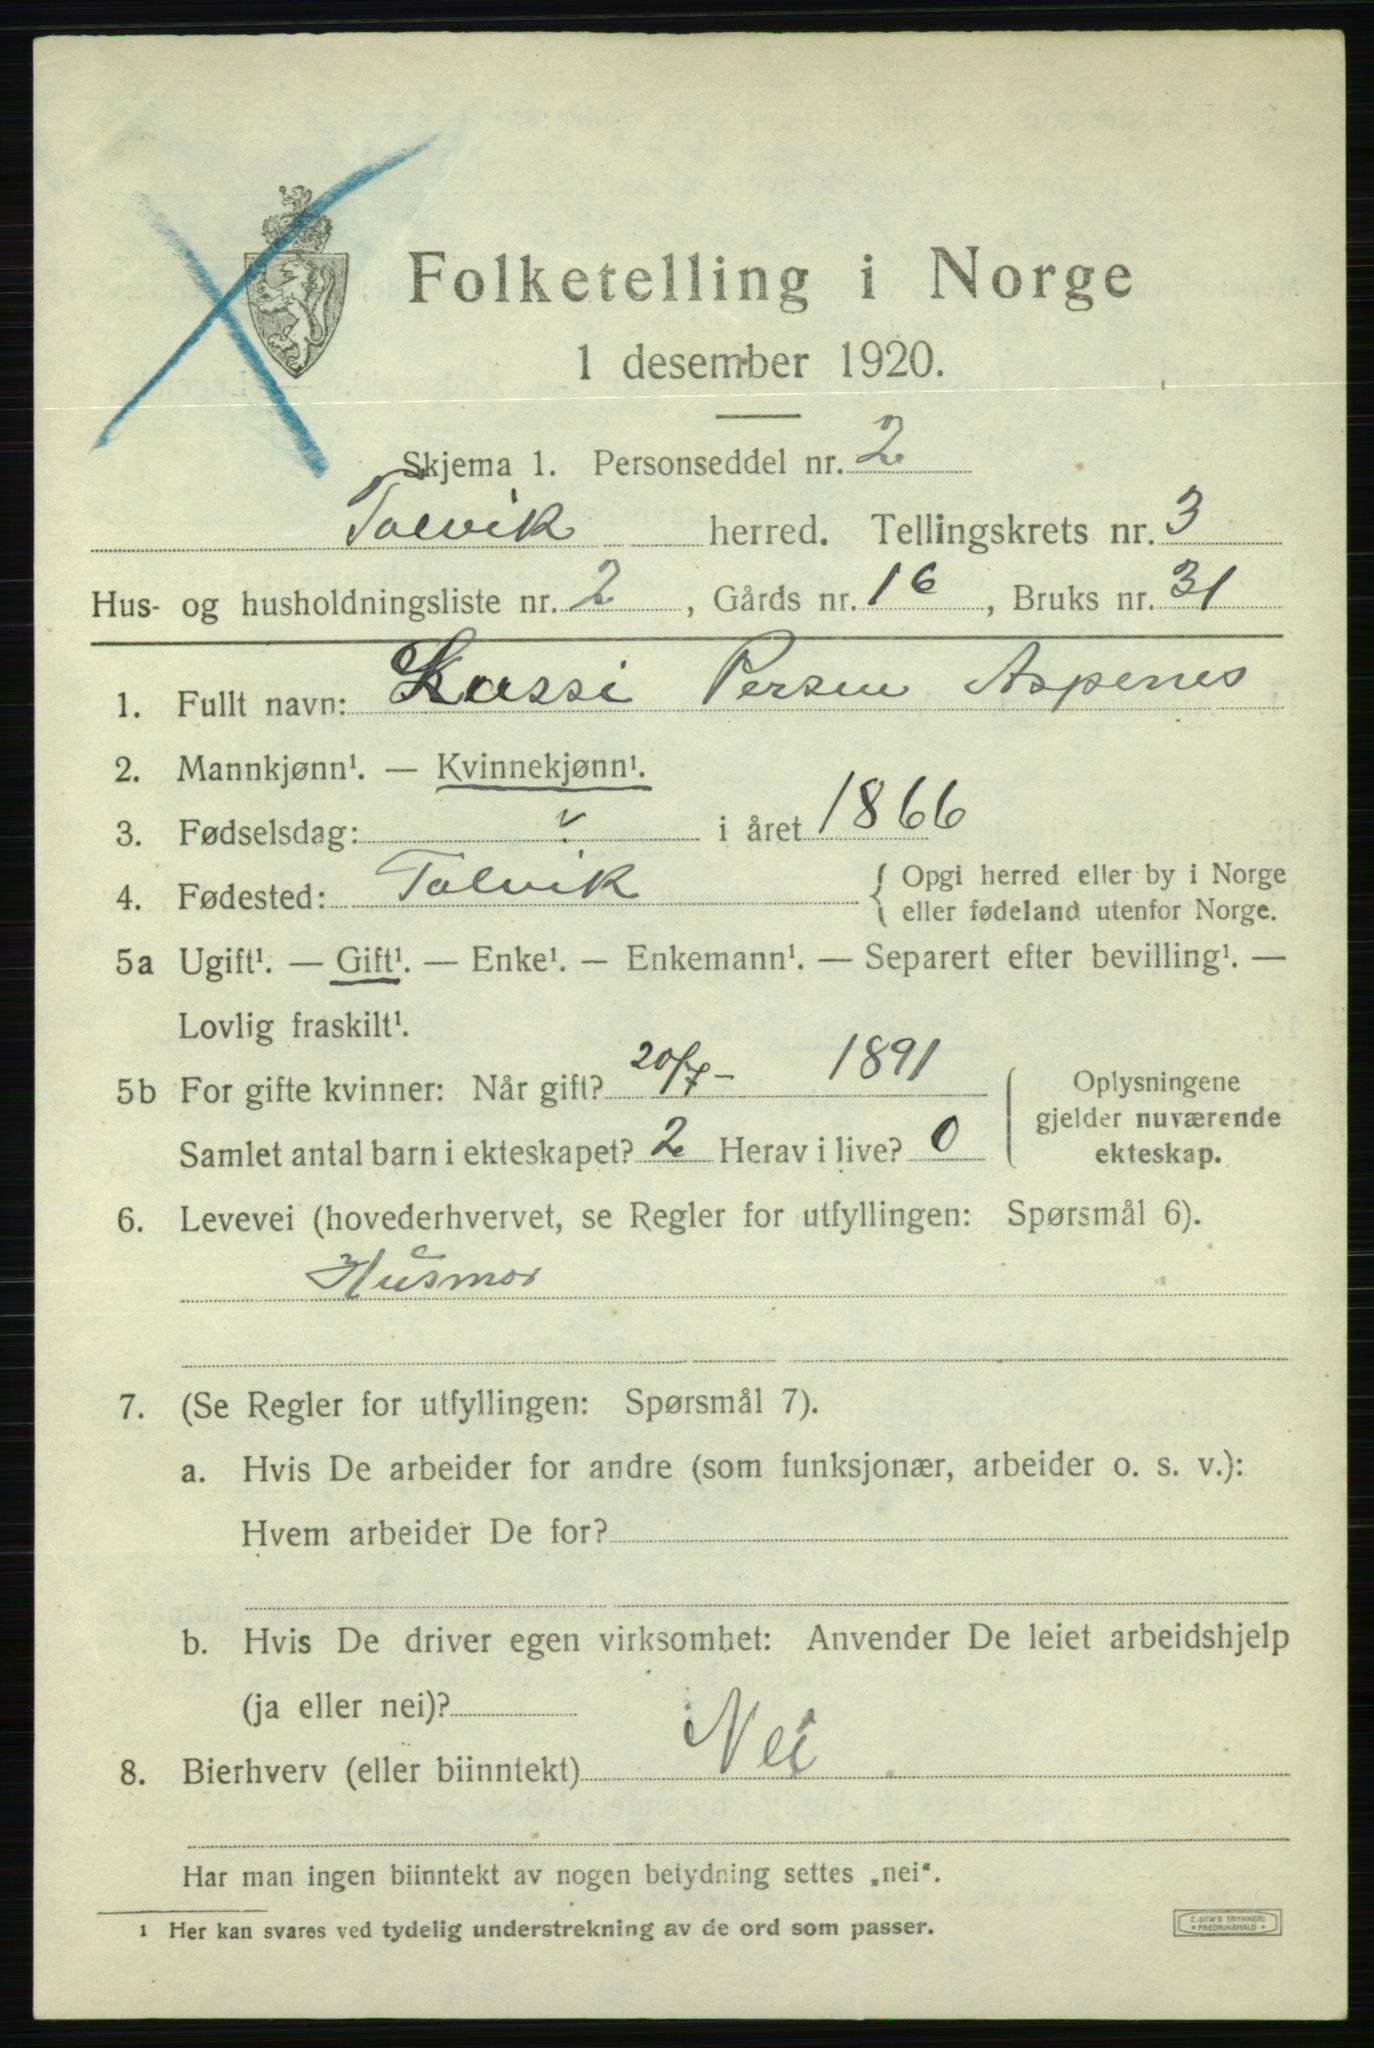 Folketelling i Norge
1 desember 1920.
Skjema 1. Personseddel nr. 2
Talvik herred. Tellingskrets nr. 3
Hus- og husholdningsliste nr. 2, Gårds nr. 16, Bruks nr. 31
1. Fullt navn: Kussi Persen Aspenes
2. Mannkjønn¹. — Kvinnekjønn¹.
3. Fødselsdag: ? i året 1866
4. Fødested: Talvik { Opgi herred eller by i Norge
eller fødeland utenfor Norge.
5a Ugift¹. — Gift¹. — Enke¹. — Enkemann¹. — Separert efter bevilling¹. —
Lovlig fraskilt¹.
5b For gifte kvinner: Når gift? 20/7- 1891
Samlet antal barn i ekteskapet? 2 Herav i live? 0
Oplysningene
gjelder nuværende
ekteskap.
6. Levevei (hovederhvervet, se Regler for utfyllingen: Spørsmål 6).
Husmor
7. (Se Regler for utfyllingen: Spørsmål 7).
a. Hvis De arbeider for andre (som funksjonær, arbeider o. s. v.):
Hvem arbeider De for?
b. Hvis De driver egen virksomhet: Anvender De leiet arbeidshjelp
(ja eller nei)?
8. Bierhverv (eller biinntekt) Nei
Har man ingen biinntekt av nogen betydning settes „nei“.
¹ Her kan svares ved tydelig understrekning av de ord som passer.
E. SEM'S TRYKKERI
FREDRIKSHALD